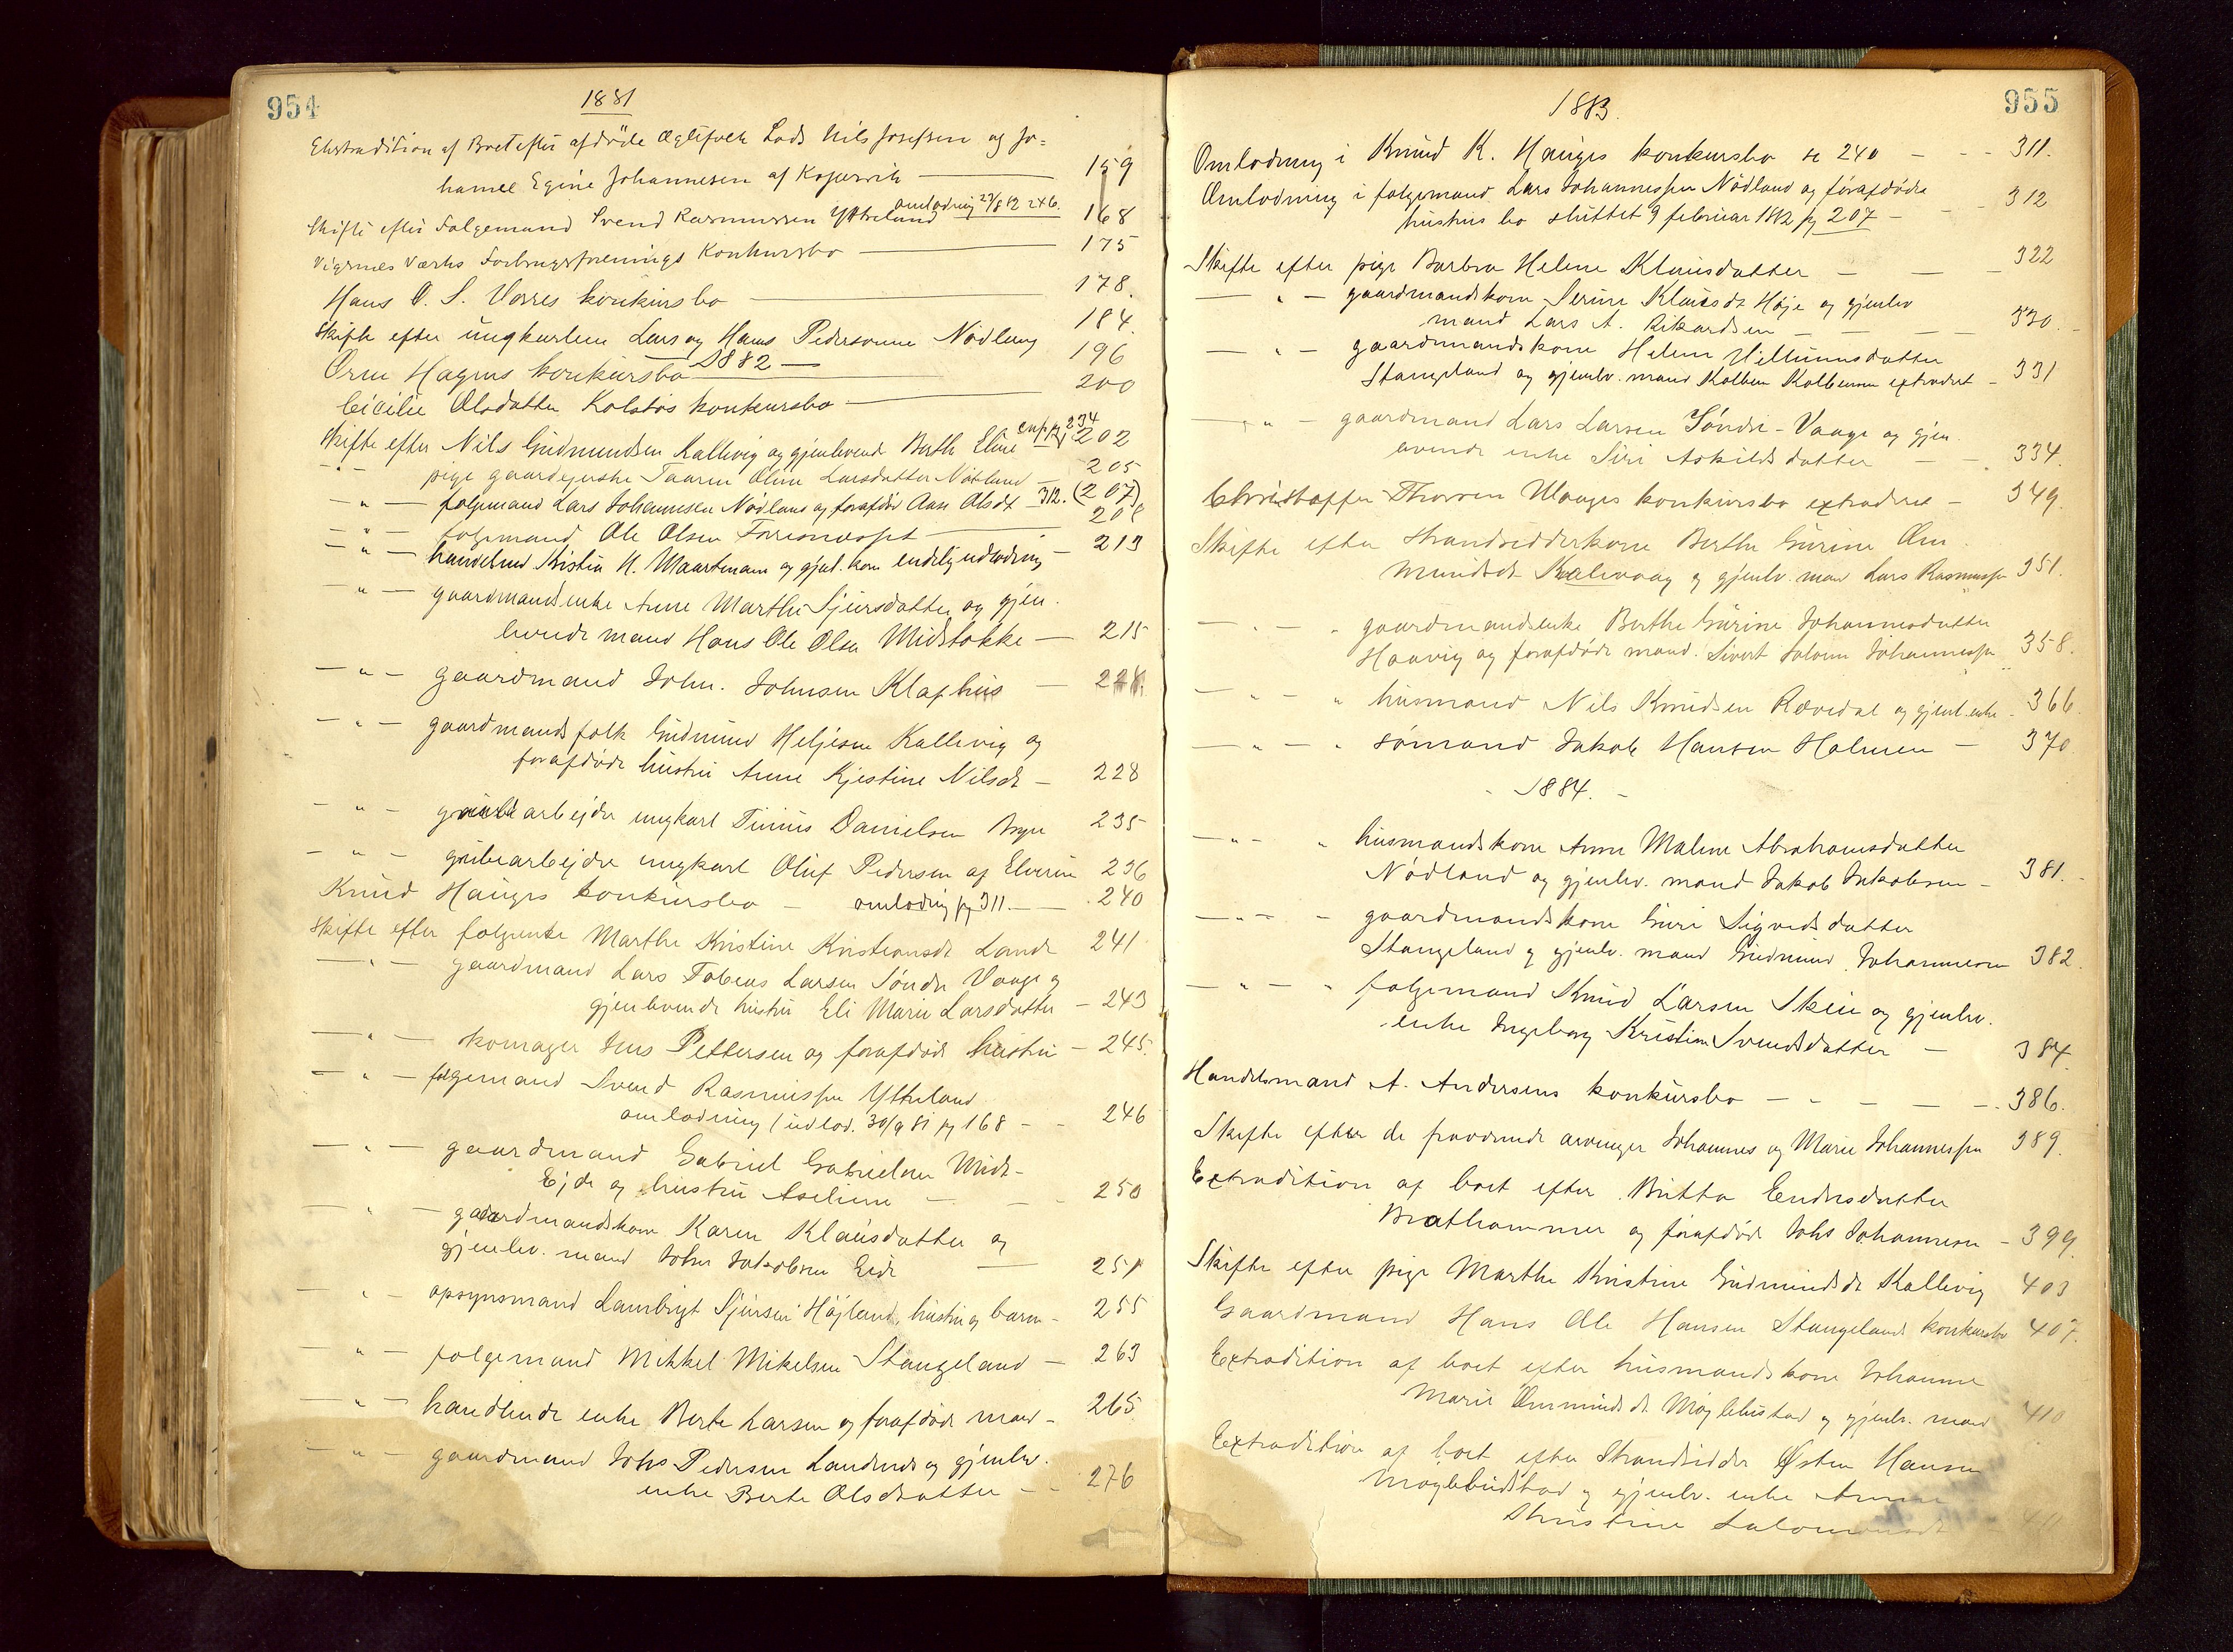 954
1881
Ekstradition af Boet efter afdöde Ægtefolk Lods Nils Josefsen og Jo=
hanne Egine Johannesen af Kopervik 159
omlodning 23/8 82 246.
Skifte efter Folgemand Svend Rasmussen Ytreland 168
Vigsnes Værks Forbrugsforenings Konkursbo 175
Hans O. S. Vorres konkursbo 178.
Skifte efter ungkarlene Lars og Hans Pedersønne Nødland 184.
Orm Hagens konkursbo 196
1882
Cicilie Olsdatter Kolstøs konkursbo 200
Skifte efter Nils Gudmundsen Kallevig og gjenlevende Berthe Eline 202
pg 234
- " - pige gaardejerske Taaren Oline Larsdatter Nødland 205
- " - folgemand Lars Johannesen Nødland og forafdøde Aase Olsdt 312. (207)
- " - folgemand Ole Olsen Forresnæsset 208
- " - handelsmd Kristen H. Maartmann og gjenl. kone endelig udlodning 213
" - gaardmandsenke Anne Marthe Sjursdatter og gjen-
levende mand Hans Ole Olsen Midstokke 215
- " - gaardmand John Johnsen Klaphus 228.
- " - gaardmandsfolk Gudmund Heljesen Kallevig og
forafdøde hustru Anne Kjestine Nilsdt 228
- " - grubearbejder ungkarl Tinius Danielsen 235
- " - grubearbejder ungkarl Oluf Pedersen af Elverum 236
Knud Hauges konkursbo - omlodning pg 311. 240
Skifte efter folgeenke Marthe Kristine Kristiansdt Lande 241
- " - gaardmand Lars Tobias Larsen Søndre Vaage og
gjenlevende hustru Eli Marie Larsdatter - 243
- " - skomager Jens Pettersen og forafdøde hustru - 245.
- " - folgemand Svend Rasmussen Ytreland
omlodning (udlod. 30/9 81 pg 168 - - 246
- " - gaardmand Gabriel Gabrielsen Midt-
Ejde og hustru Aseline - 250
- " - gaardmandskone Karen Klausdatter og
gjenlev. mand John Jakobsen Eide 251
- " - opsynsmand Lambrigt Sjursen Højland, hustru og barn - 255
- " - folgemand Mikkel Mikelsen Stangeland - 263
- " - handlende enke Berte Larsen og forafdøde mand - 265
- " - gaardmand Johs Pedersen Landnes og gjenlev.
enke Berte Olsdatter - - 276
955
1883.
Omlodning i Knud K. Hauges konkursbo se 240 - - - 311.
Omlodning i folgemand Lars Johannessen Nødland og forafdøde
hustrus bo sluttet 9 februar 1882 pg 207 - - - 312
Skifte efter pige Barbra Helene Klausdatter - - - 322
- " - gaardmandskone Serine Klausdt Høje og gjenlev
mand Lars A. Rikardsen - - - - 330.
- " - gaardmandskone Helene Villumsdatter
Stangeland og gjenlev. mand Kolben Kolbensen extraderet - 331
- " - gaardmand Lars Larsen Søndre-Vaage og gjen-
levende enke Siri Askildsdatter - - 334.
Christoffer Thorsen Vaages konkursbo extraderet - 349.
Skifte efter Strandsidderkone Berthe Gurine Om-
mundsdt Kalevaag og gjenlev. mand Lars Rasmussen 351.
- " - gaardmandsenke Berthe Gurine Johannesdatter
Haavig og forafdøde mand Sivert Salomon Johannessen 358.
- " - " husmand Nils Knudsen Rævedal og gjenl. enke 366.
- " - " sømand Jakob Hansen Holmen - 370.
- 1884. -
- " - " husmandskone Anne Malene Abrahamsdatter
Nødland og gjenlev. mand Jakob Jakobsen - 381.
- " - - gaardmandskone Guri Sigvedsdatter
Stangeland og gjenlev. mand Gudmund Johannesen 382.
- " - " folgemand Knud Larsen Skeie og gjenlev.
enke Ingeborg Kristine Svendsdatter - 384.
Handelsmand A. Andersens konkursbo - - - - 386.
Skifte efter de fraværende arvinger Johannes og Marie Johannessen 389.
Extradition af boet efter Britta Endresdatter
Brathammer og forafdøde Johs Johannesen - 399.
Skifte efter pige Marthe Kristine Gudmundsdt Kallevig 403
Gaardmand Hans Ole Hansen Stangelands konkursbo 407.
Extradition af boet efter husmandskone Johanne
Marie Ommundsdt Møglebustad og gjenlev. mand 410
Extradition af boet efter Strandsidder Østen Hansen
Møglebustad og gjenlev. enke Anne
Kristine Salomonsdt 411